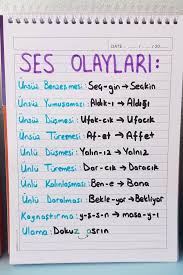 DATE: / /20
SES OLAYLARI:
Ünsüz Benzeşmesi: Seç-gin → Seçkin
Ünsüz Yumuşaması: Aldık-ı → Aldığı
Ünsüz Düşmesi: Ufak-cık → Ufacık
Ünsüz Türemesi: Af-et → Affet
Ünlü Düşmesi: Yalın-ız → Yalnız
Ünlü Türemesi: Dar-cık → Daracık
Ünlü Kalınlaşması: Ben-e → Bana
Ünlü Daralması: Bekle-yor → Bekliyor
Kaynaştırma: y-ş-s-n → masa-y-ı
Ulama: Dokuz asrın